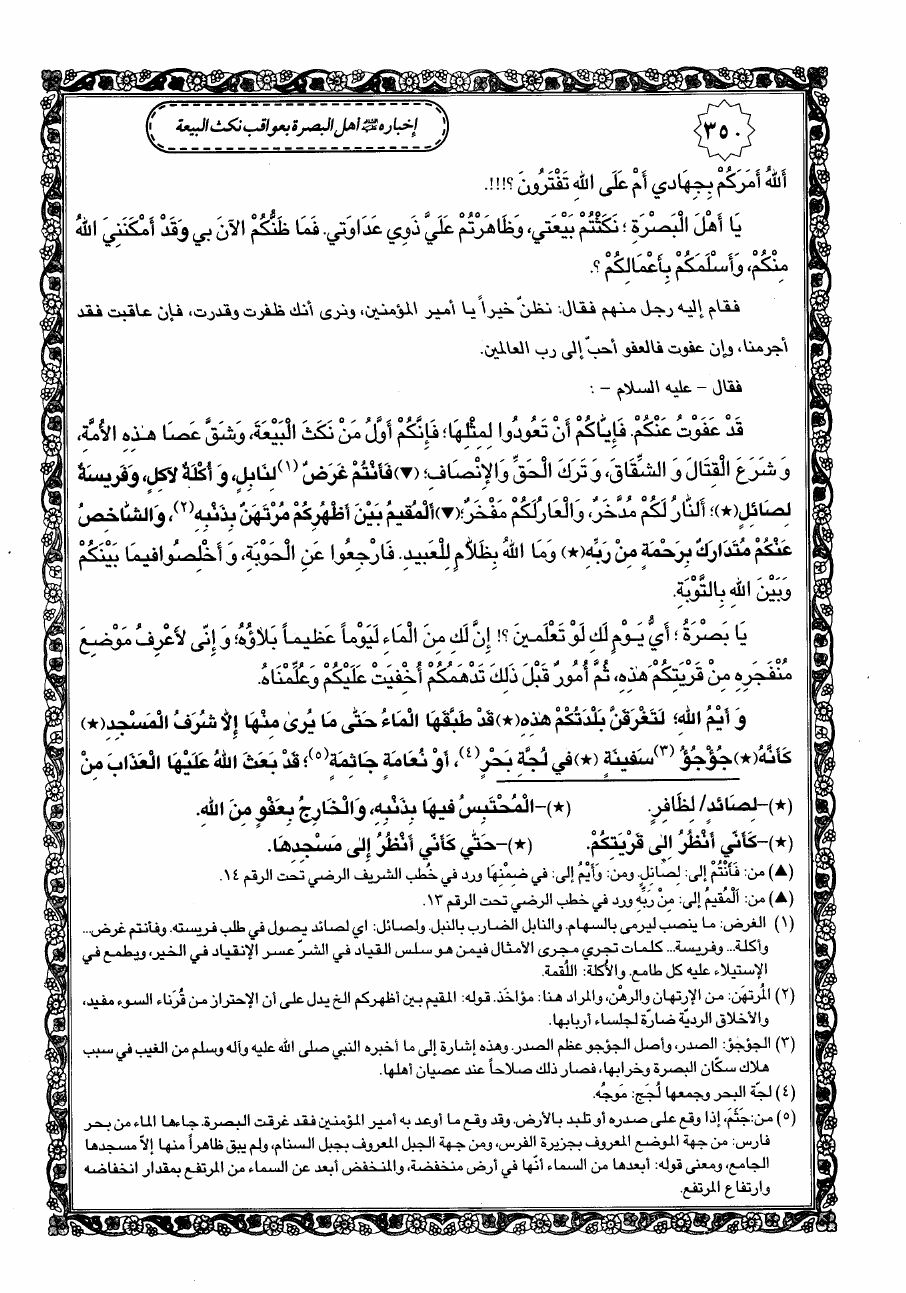 ٣٥٠
إخباره عليه السلام أهل البصرة بعواقب نكث البيعة
أَللهُ أَمَرَكُمْ بِجِهَادِي أَمْ عَلَى اللهِ تَفْتَرُونَ ؟!!!.
يَا أَهْلَ الْبَصْرَةِ ؛ نَكَثْتُمْ بَيْعَتِي، وَظَاهَرْتُمْ عَلَيَّ ذَوِي عَدَاوَتِي. فَمَا ظَنُّكُمْ الآنَ بي وَقَدْ أَمْكَنَنِيَ اللهُ
مِنْكُمْ، وَأَسْلَمَكُمْ بِأَعْمَالِكُمْ ؟.
فقام إليه رجل منهم فقال: نظنّ خيراً يا أمير المؤمنين، ونرى أنك ظفرت وقدرت، فإن عاقبت فقد
أجرمنا، وإن عفوت فالعفو أحبّ إلى رب العالمين.
فقال - عليه السلام - :
قَدْ عَفَوْتُ عَنْكُمْ. فَإِيَّاكُمْ أَنْ تَعُودُوا لِمِثْلِهَا؛ فَإِنَّكُمْ أَوَّلُ مَنْ نَكَثَ الْبَيْعَةَ، وَشَقَّ عَصَا هٰذِهِ الأُمَّةِ،
وَ شَرَعَ الْقِتَالَ وَ الشِّقَاقَ، وَ تَرَكَ الْحَقَّ وَالإِنْصَافَ؛ (▼) فَأَنْتُمْ غَرَضٌ (١) لِنَابِلٍ، وَ أُكْلَةٌ لآكِلٍ، وَفَرِيسَةٌ
لِصَائِلٍ(★)؛ أَلنَّارُ لَكُمْ مُدَّخَرٌ، وَالْعَارُ لَكُمْ مَفْخَرٌ؛(▼) أَلْمُقِيمُ بَيْنَ أَظْهُرِكُمْ مُرْتَهَنٌ بِذَنْبِهِ (٢)، وَالشَّاخِصُ
عَنْكُمْ مُتَدَارَكٌ بِرَحْمَةٍ مِنْ رَبِّهِ (★) وَمَا اللهُ بِظَلاَّمٍ لِلْعَبِيدِ. فَارْجِعُوا عَنِ الْحَوْبَةِ، وَ أَخْلِصُوا فِيمَا بَيْنَكُمْ
وَبَيْنَ اللهِ بِالتَّوْبَةِ.
يَا بَصْرَةُ ؛ أَيُّ يَوْمٍ لَكِ لَوْ تَعْلَمِينَ ؟! إِنَّ لَكِ مِنَ الْمَاءِ لَيَوْماً عَظِيماً بَلاَؤُهُ؛ وَ إِنّي لأَعْرِفُ مَوْضِعَ
مُنْفَجَرِهِ مِنْ قَرْيَتِكُمْ هٰذِهِ، ثُمَّ أُمُورٌ قَبْلَ ذَلِكَ تَدْهَمُكُمْ أُخْفِيَتْ عَلَيْكُمْ وَعُلِّمْنَاهُ.
وَ أَيْمُ اللهِ؛ لَتَغْرَقَنَّ بَلْدَتُكُمْ هٰذِهِ (★) قَدْ طَبَّقَهَا الْمَاءُ حَتّٰى مَا يُرىٰ مِنْهَا إِلاَّ شُرَفُ الْمَسْجِدِ (★)
كَأَنَّهُ (★) جُؤْجُؤُ (٣) سَفِينَةٍ (★) في لُجَّةِ بَحْرٍ (٤)، أَوْ نُعَامَةٍ جَاثِمَةٍ (٥)؛ قَدْ بَعَثَ اللهُ عَلَيْهَا الْعَذَابَ مِنْ
(★)-لِصَائِدٍ/ لِظَافِرٍ. (★)-الْمُحْتَبِسُ فيهَا بِذَنْبِهِ، وَالْخَارِجُ بِعَفْوٍ مِنَ اللهِ.
(★)-كَأَنّي أَنْظُرُ إِلى قَرْيَتِكُمْ. (★)-حَتّٰى كَأَنّي أَنْظُرُ إِلى مَسْجِدِهَا.
(▲) من: فَأَنْتُمْ إلى: لِصَائِلٍ. ومن: وَأَيْمُ إلى: في ضِمْنِهَا ورد في خُطب الشريف الرضي تحت الرقم ١٤.
(▲) من: أَلْمُقيمُ إلى: مِنْ رَبِّهِ ورد في خطب الرضي تحت الرقم ١٣.
(١) الغرض: ما ينصب ليرمى بالسهام. والنابل الضارب بالنبل. ولصائل: اي لصائد يصول في طلب فريسته. وفأنتم غرض...
وأكلة... وفريسة... كلمات تجري مجرى الأمثال فيمن هو سلس القياد في الشرّ عسر الإنقياد في الخير، ويطمع في
الإستيلاء عليه كل طامع. والأُكلة: اللُقمة.
(٢) المُرتهَن: من الإرتهان والرهْن، والمراد هنا: مؤاخَذ. قوله: المقيم بين أظهركم الخ يدل على أن الإحتراز من قُرَناء السوء مفيد،
والأخلاق الرديّة ضارّة لجلساء أربابها.
(٣) الجؤجؤ: الصدر، وأصل الجؤجو عظم الصدر. وهذه إشارة إلى ما أخبره النبي صلى الله عليه وآله وسلم من الغيب في سبب
هلاك سكّان البصرة وخرابها، فصار ذلك صلاحاً عند عصيان أهلها.
(٤) لجّة البحر وجمعها لُجَج: مَوجُه.
(٥) من:جَثَمَ، إذا وقع على صدره أو تلبد بالأرض. وقد وقع ما أوعد به أمير المؤمنين فقد غرقت البصرة. جاءها الماء من بحر
فارس: من جهة الموضع المعروف بجزيرة الفرس، ومن جهة الجبل المعروف بجبل السنام، ولم يبق ظاهراً منها إلاّ مسجدها
الجامع، ومعنى قوله: أبعدها من السماء أنّها في أرض منخفضة، والمنخفض أبعد عن السماء من المرتفع بمقدار انخفاضه
وارتفاع المرتفع.